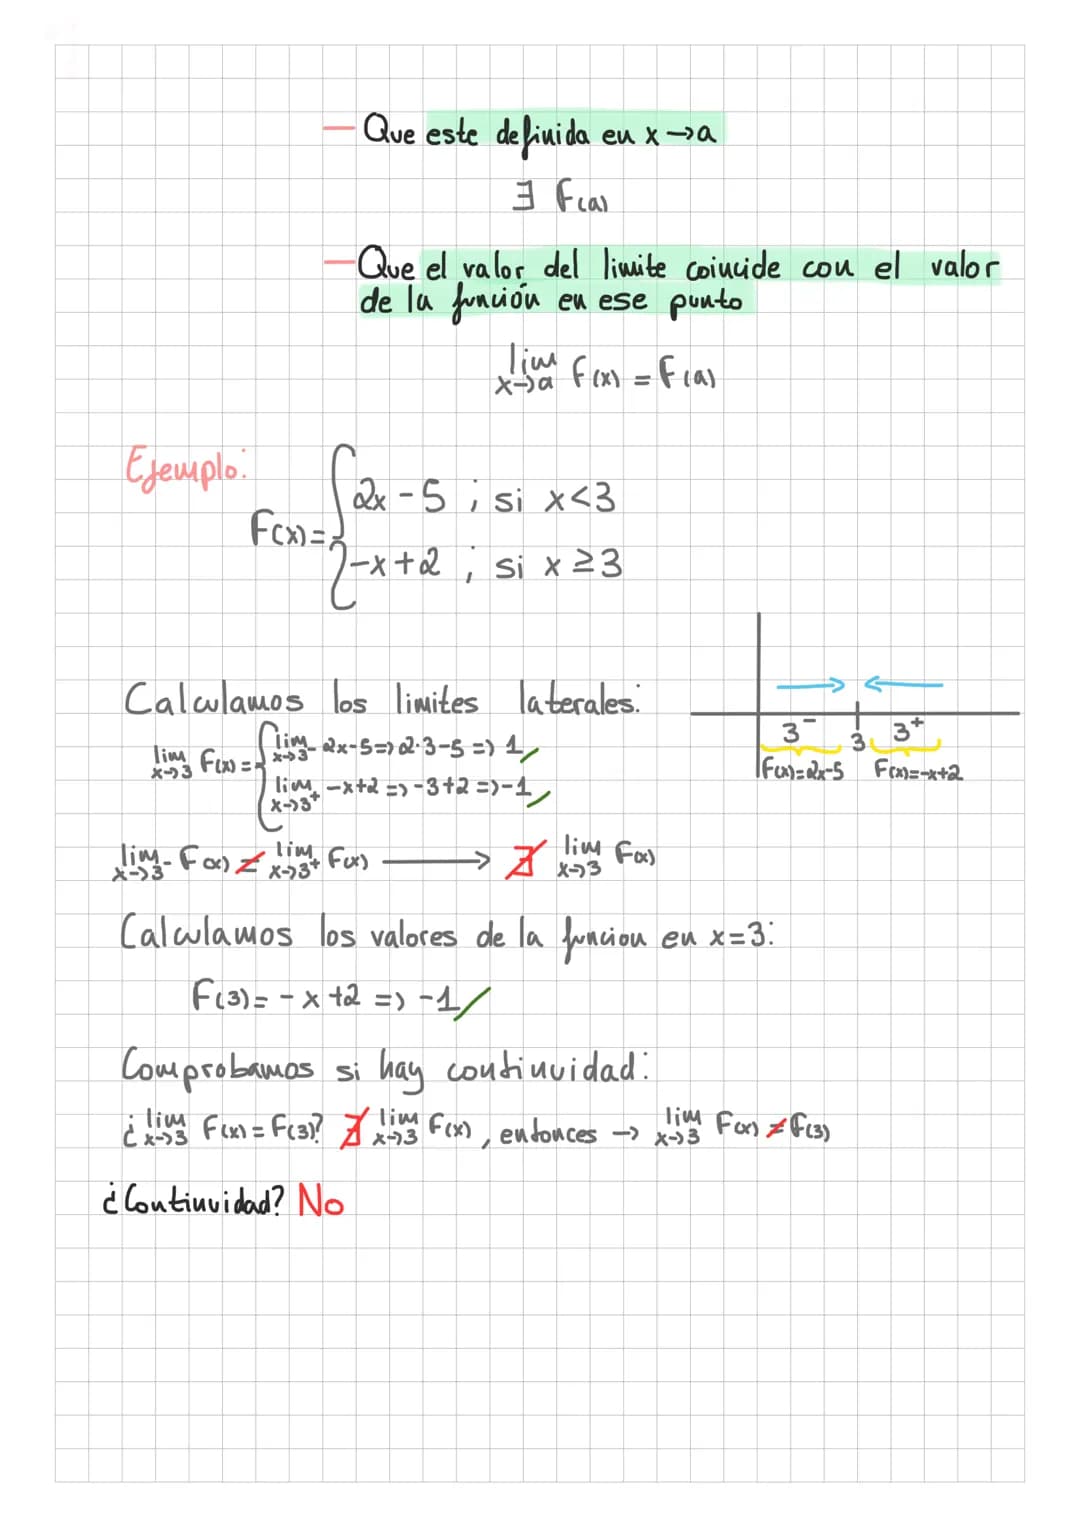 — Que este definida en x→a
∃ F(a)
— Que el valor del limite coincide con el valor
de la función en ese punto
lim x→a F(x) = F(a)
Ejemplo:
F(x)= { 2x-5 ; si x<3
-x+2 ; si x≥3
Calculamos los limites laterales:
lim x→3 F(x)= { lim x→3⁻ 2x-5=>2·3-5 => 1
lim x→3⁺ -x+2 => -3+2 =>-1
3⁻ 3 3⁺
F(x)=2x-5 F(x)=-x+2
lim x→3⁻ F(x) ≠ lim x→3⁺ F(x) → ∄ lim x→3 F(x)
Calculamos los valores de la funcion en x=3:
F(3)= -x+2 => -1
Comprobamos si hay continuidad:
¿lim x→3 F(x)=F(3)? ∄ lim x→3 F(x), entonces → lim x→3 F(x) ≠ F(3)
¿Continuidad? No